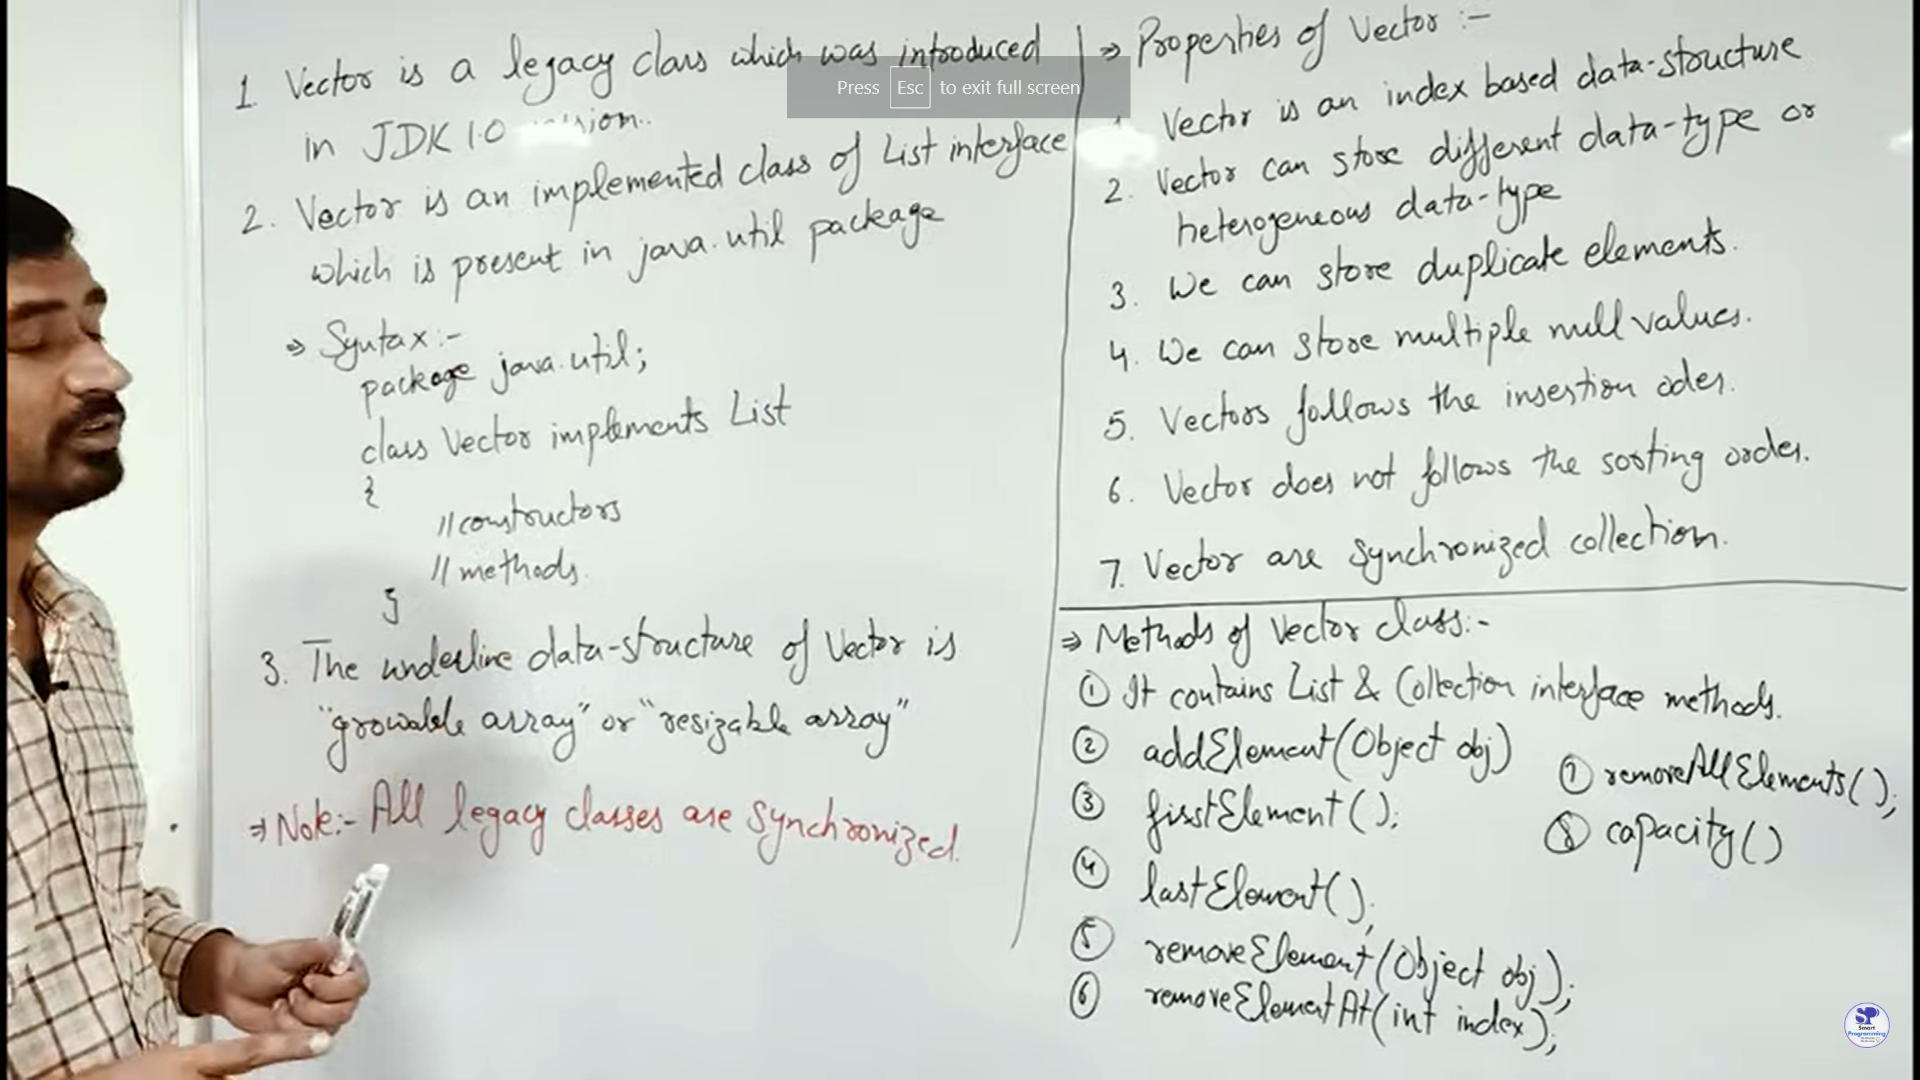 1. Vector is a legacy class which was introduced
in JDK 1.0 version..
2. Vector is an implemented class of List interface
which is present in java.util package
⇒ Syntax:-
package java.util;
class Vector implements List
{
//constructors
//methods.
}
3. The underline data-structure of Vector is
"growable array" or "resizable array"
⇒ Note:- All legacy classes are synchronized.
Press Esc to exit full screen
⇒ Properties of Vector :-
1. Vector is an index based data-structure
2. Vector can store different data-type or
heterogeneous data-type
3. We can store duplicate elements.
4. We can store multiple null values.
5. Vectors follows the insertion oder.
6. Vector does not follows the sorting order.
7. Vector are synchronized collection.
⇒ Methods of Vector class:-
① It contains List & Collection interface methods.
② addElement(Object obj)
③ firstElement();
④ lastElement();
⑤ removeElement(Object obj);
⑥ removeElementAt(int index);
⑦ removeAllElements();
⑧ capacity()
SP
Smart
Programming